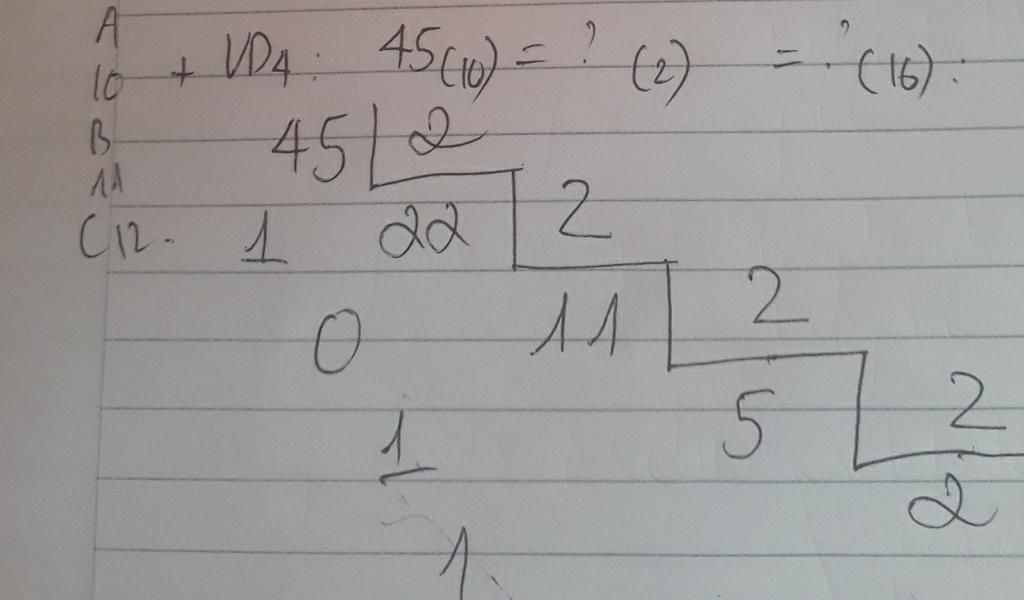 A
10 + VD4: 45(10) = ? (2) = ? (16):
B 45 2
11
C12. 1 22 2
0 11 2
1 5 2
2
1